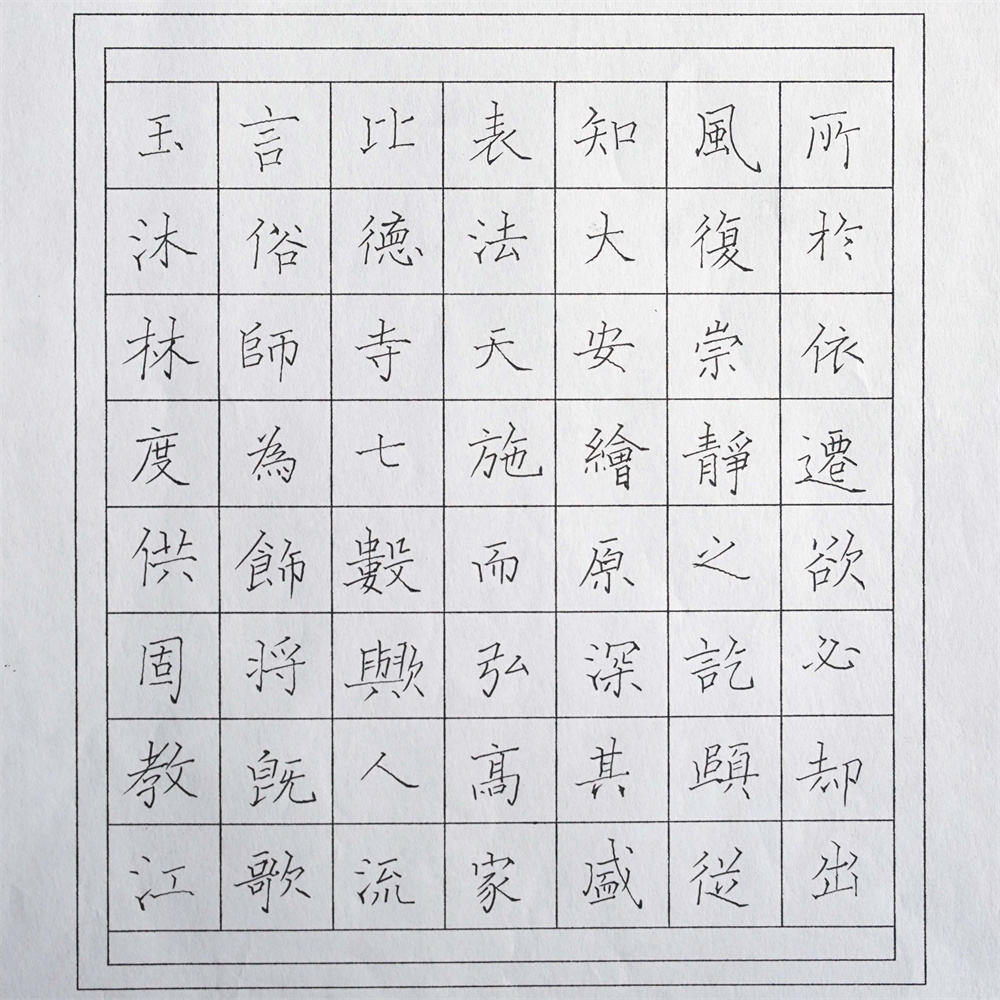 所於依遷欲必却出
風復崇靜之訖頤從
知大安繪原深其盛
表法天施而弘高家
比德寺七數歟人流
言俗師為飾将既歌
玉沐林度供固教江